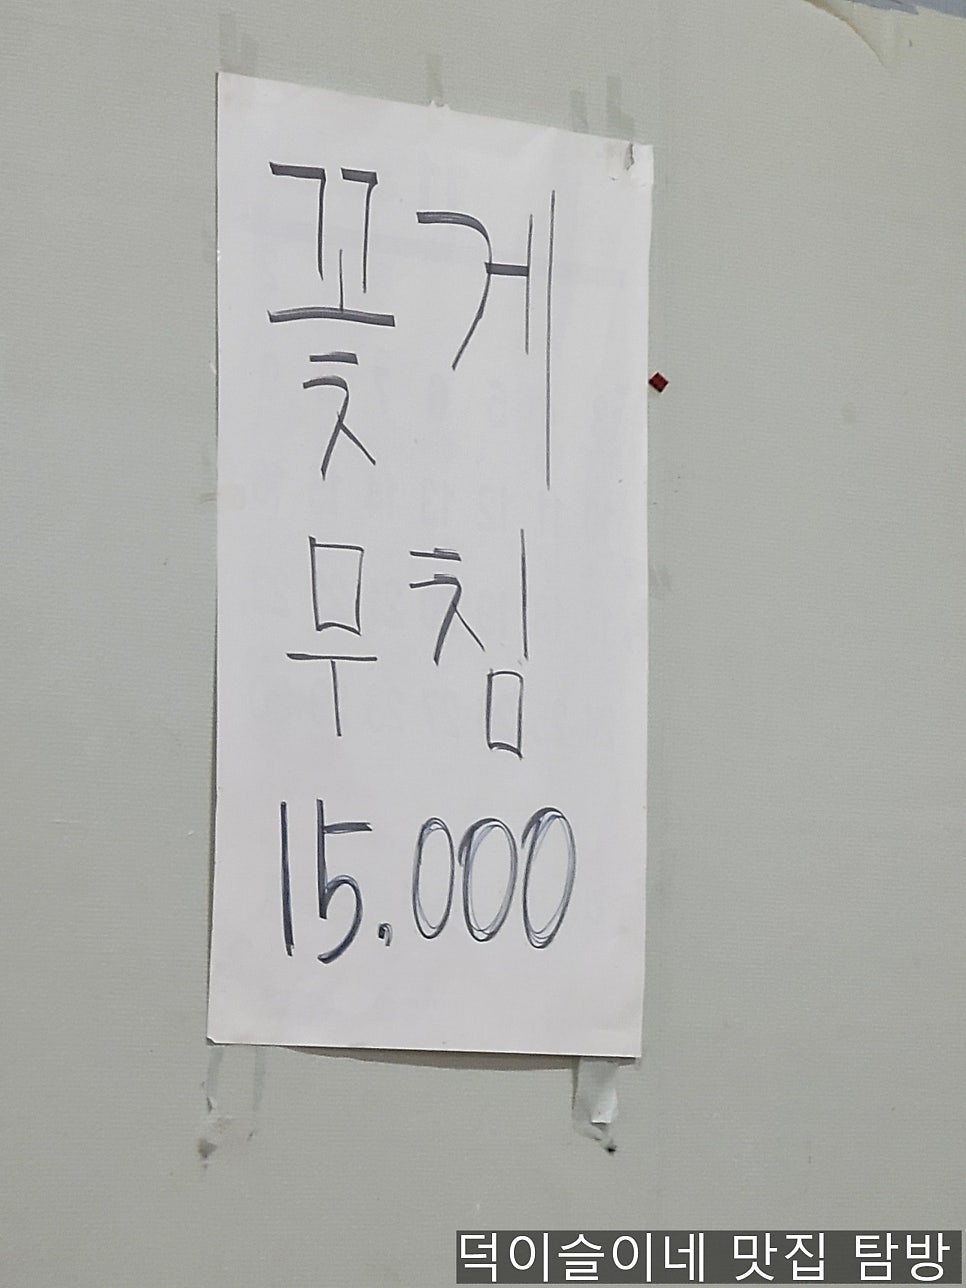 꽃게
무침
15,000
덕이슬이네 맛집 탐방